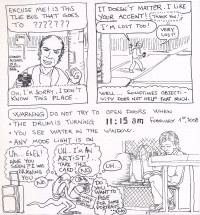 EXCUSE ME! IS THIS
THE BUS THAT GOES
TO ???????
OH, I'M SORRY, I DON'T
KNOW THIS PLACE
IT DOESN'T MATTER. I LIKE
YOUR ACCENT!
THANK YOU!
I'M LOST TOO!
VERY
LOST!
WELL... SOMETIMES OBJECTI-
VITY DOES NOT HELP THAT MUCH.
WARNING DO NOT TRY TO OPEN DOORS WHEN:
• THE DRUM IS TURNING
• YOU SEE WATER IN THE WINDOW.
• ANY MODE LIGHT IS ON
11:15 am FEBRUARY 1st 2008
UH... EHEH!
HAVE YOU
SEEN I WAS
DRAWING
YOU?
NO
UH... I'M AN
ARTIST!..
TAKE THIS
CARD!
NO
UH...
YOU
WANT TO